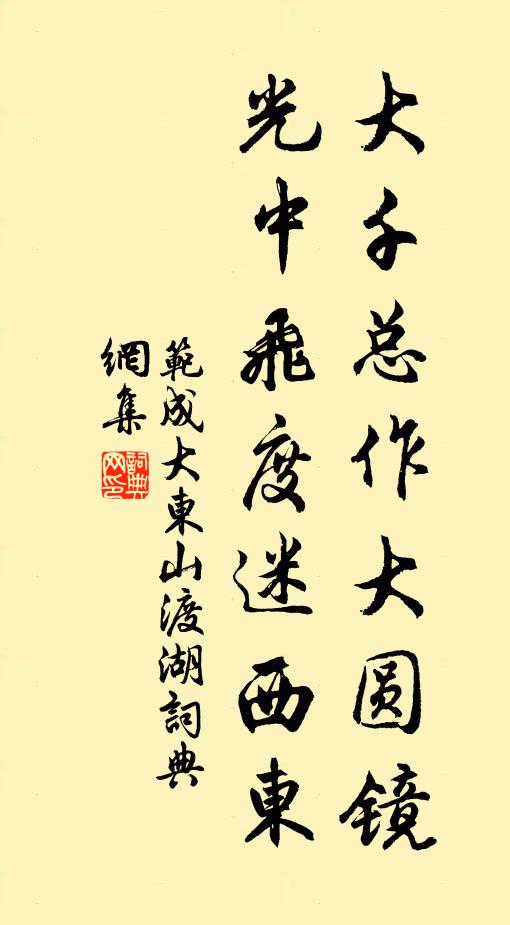 大千总作大圆镜
光中飛度迷西東
範成大東山渡湖詞典
網集
詞典
网印